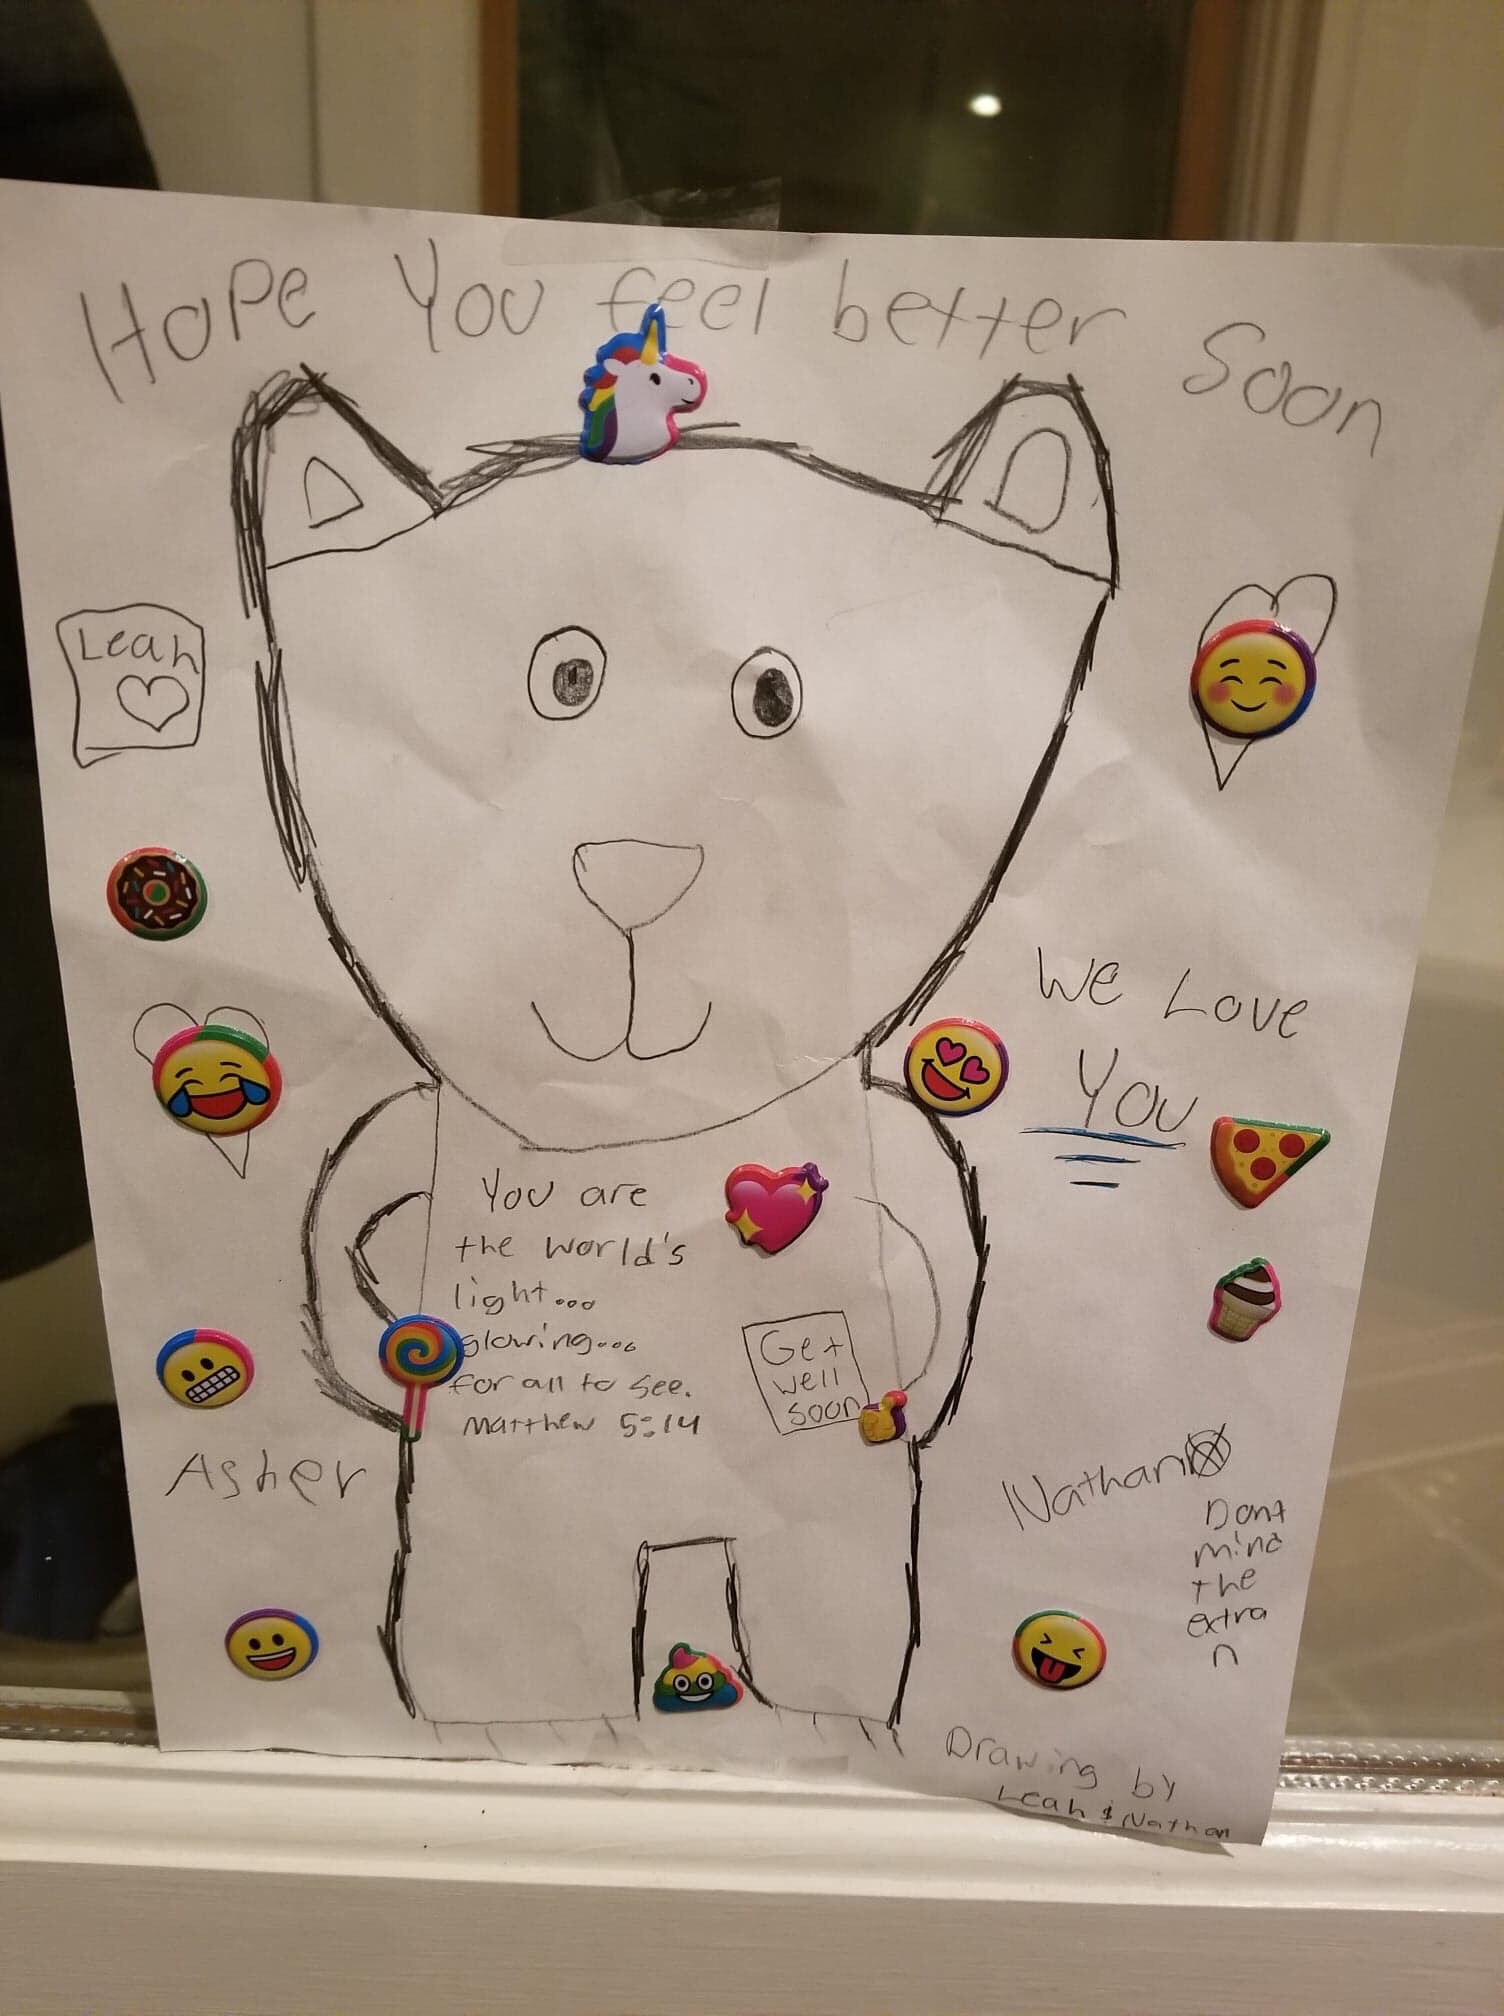 Hope You feel better Soon
Leah
We Love
You
You are
the world's
light...
glowing...
for all to see.
Matthew 5:14
Get
well
soon
Asher
Nathan
Dont
mind
the
extra
n
Drawing by
Leah & Nathan